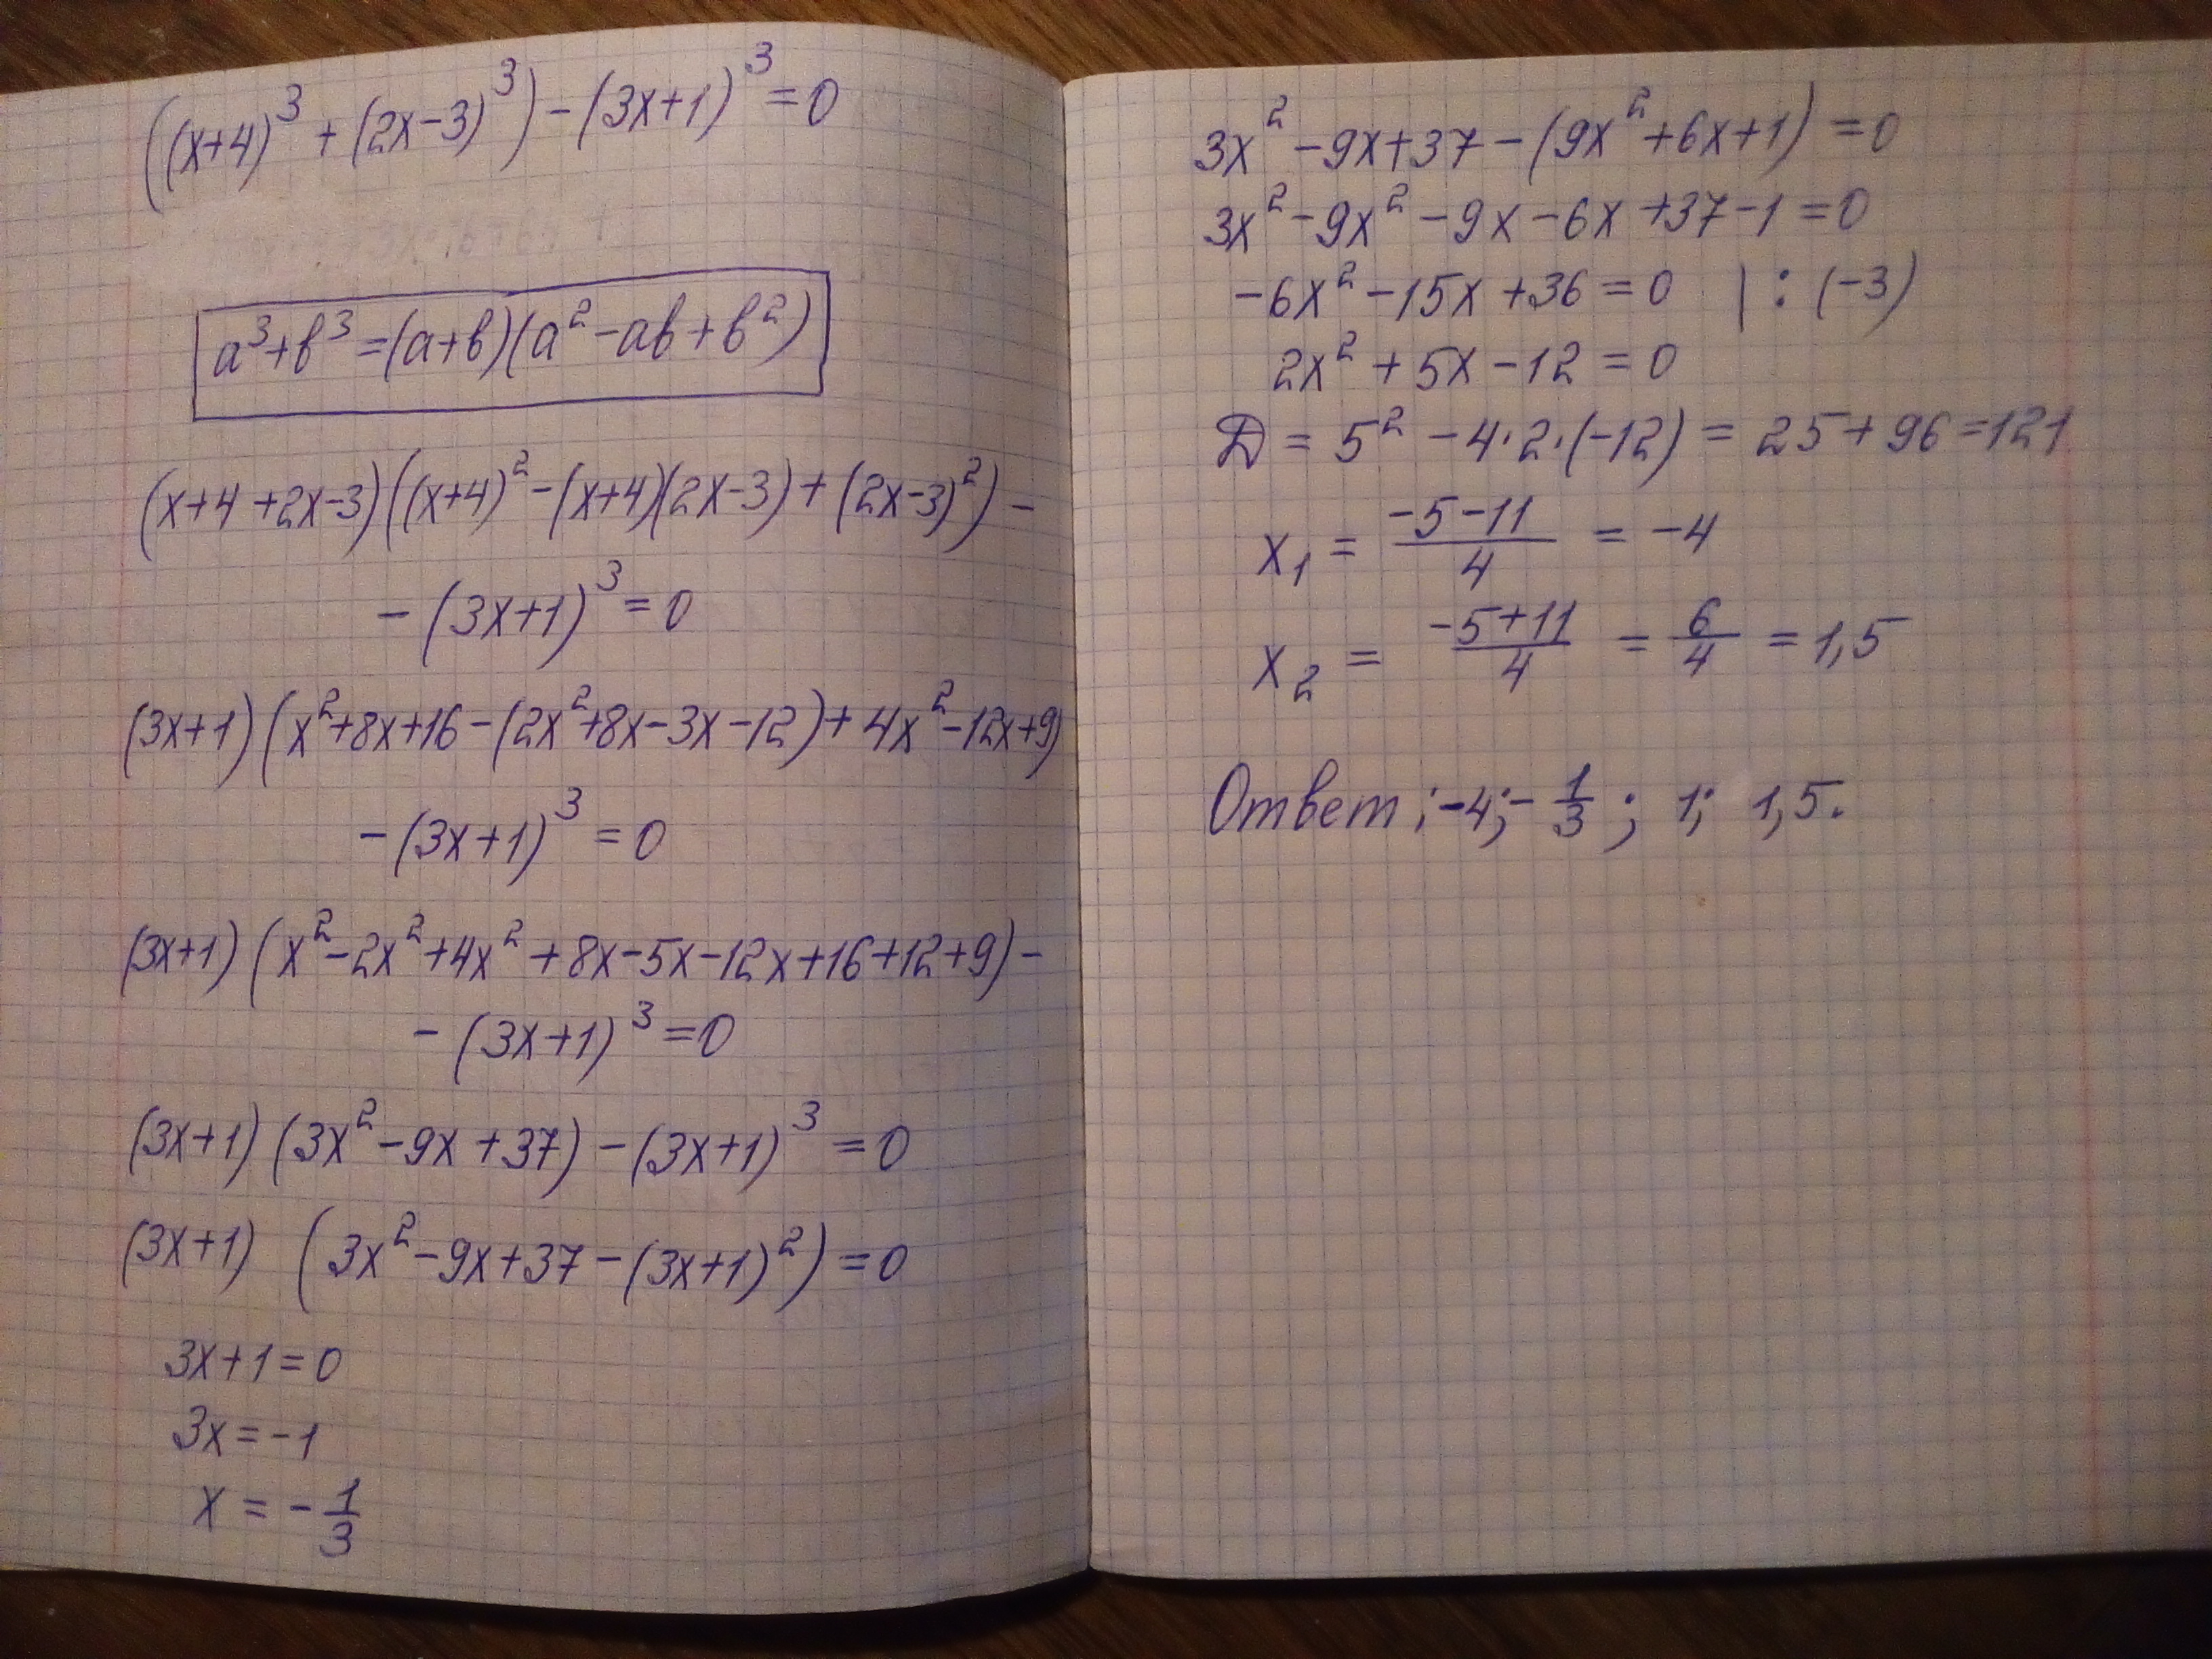 ((x+4)³ + (2x-3)³) - (3x+1)³ = 0
a³+b³=(a+b)(a²-ab+b²)
(x+4+2x-3)((x+4)²-(x+4)(2x-3)+(2x-3)²)-
-(3x+1)³=0
(3x+1)(x²+8x+16-(2x²+8x-3x-12)+4x²-12x+9)
-(3x+1)³=0
(3x+1)(x²-2x²+4x²+8x-5x-12x+16+12+9)-
-(3x+1)³=0
(3x+1)(3x²-9x+37)-(3x+1)³=0
(3x+1)(3x²-9x+37-(3x+1)²)=0
3x+1=0
3x=-1
x=-1/3
3x²-9x+37-(9x²+6x+1)=0
3x²-9x²-9x-6x+37-1=0
-6x²-15x+36=0 |:(-3)
2x²+5x-12=0
D=5²-4·2·(-12)=25+96=121
x₁=(-5-11)/4=-4
x₂=(-5+11)/4=6/4=1,5
Ответ: -4; -1/3; 1; 1,5.